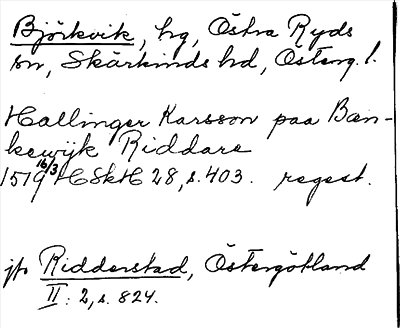 Björkvik, hg, Östra Ryds
sn, Skärkinds hd, Österg. l.
Hallinger Karsson paa Bæn-
kewijk Riddare
1519 16/3 HSkH 28, s. 403. regest.
jfr Ridderstad, Östergötland
II: 2, s. 824.